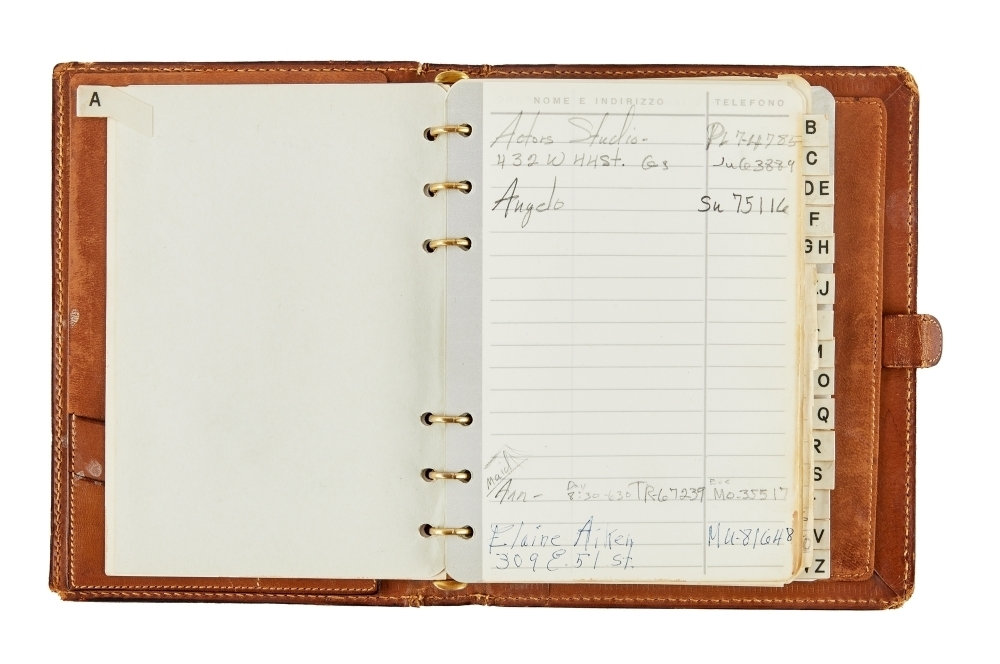 A
NOME E INDIRIZZO TELEFONO
Actors Studio - PL 7-4785
432 W 44 St. Ju63889
Angelo Su 75116
Maid
Day Eve
Ann - 8:30-630 TR-67239 Mo. 35517
Elaine Aiken MU-81648
309 E. 51 St.
B
C
DE
F
GH
J
O
Q
R
S
V
Z